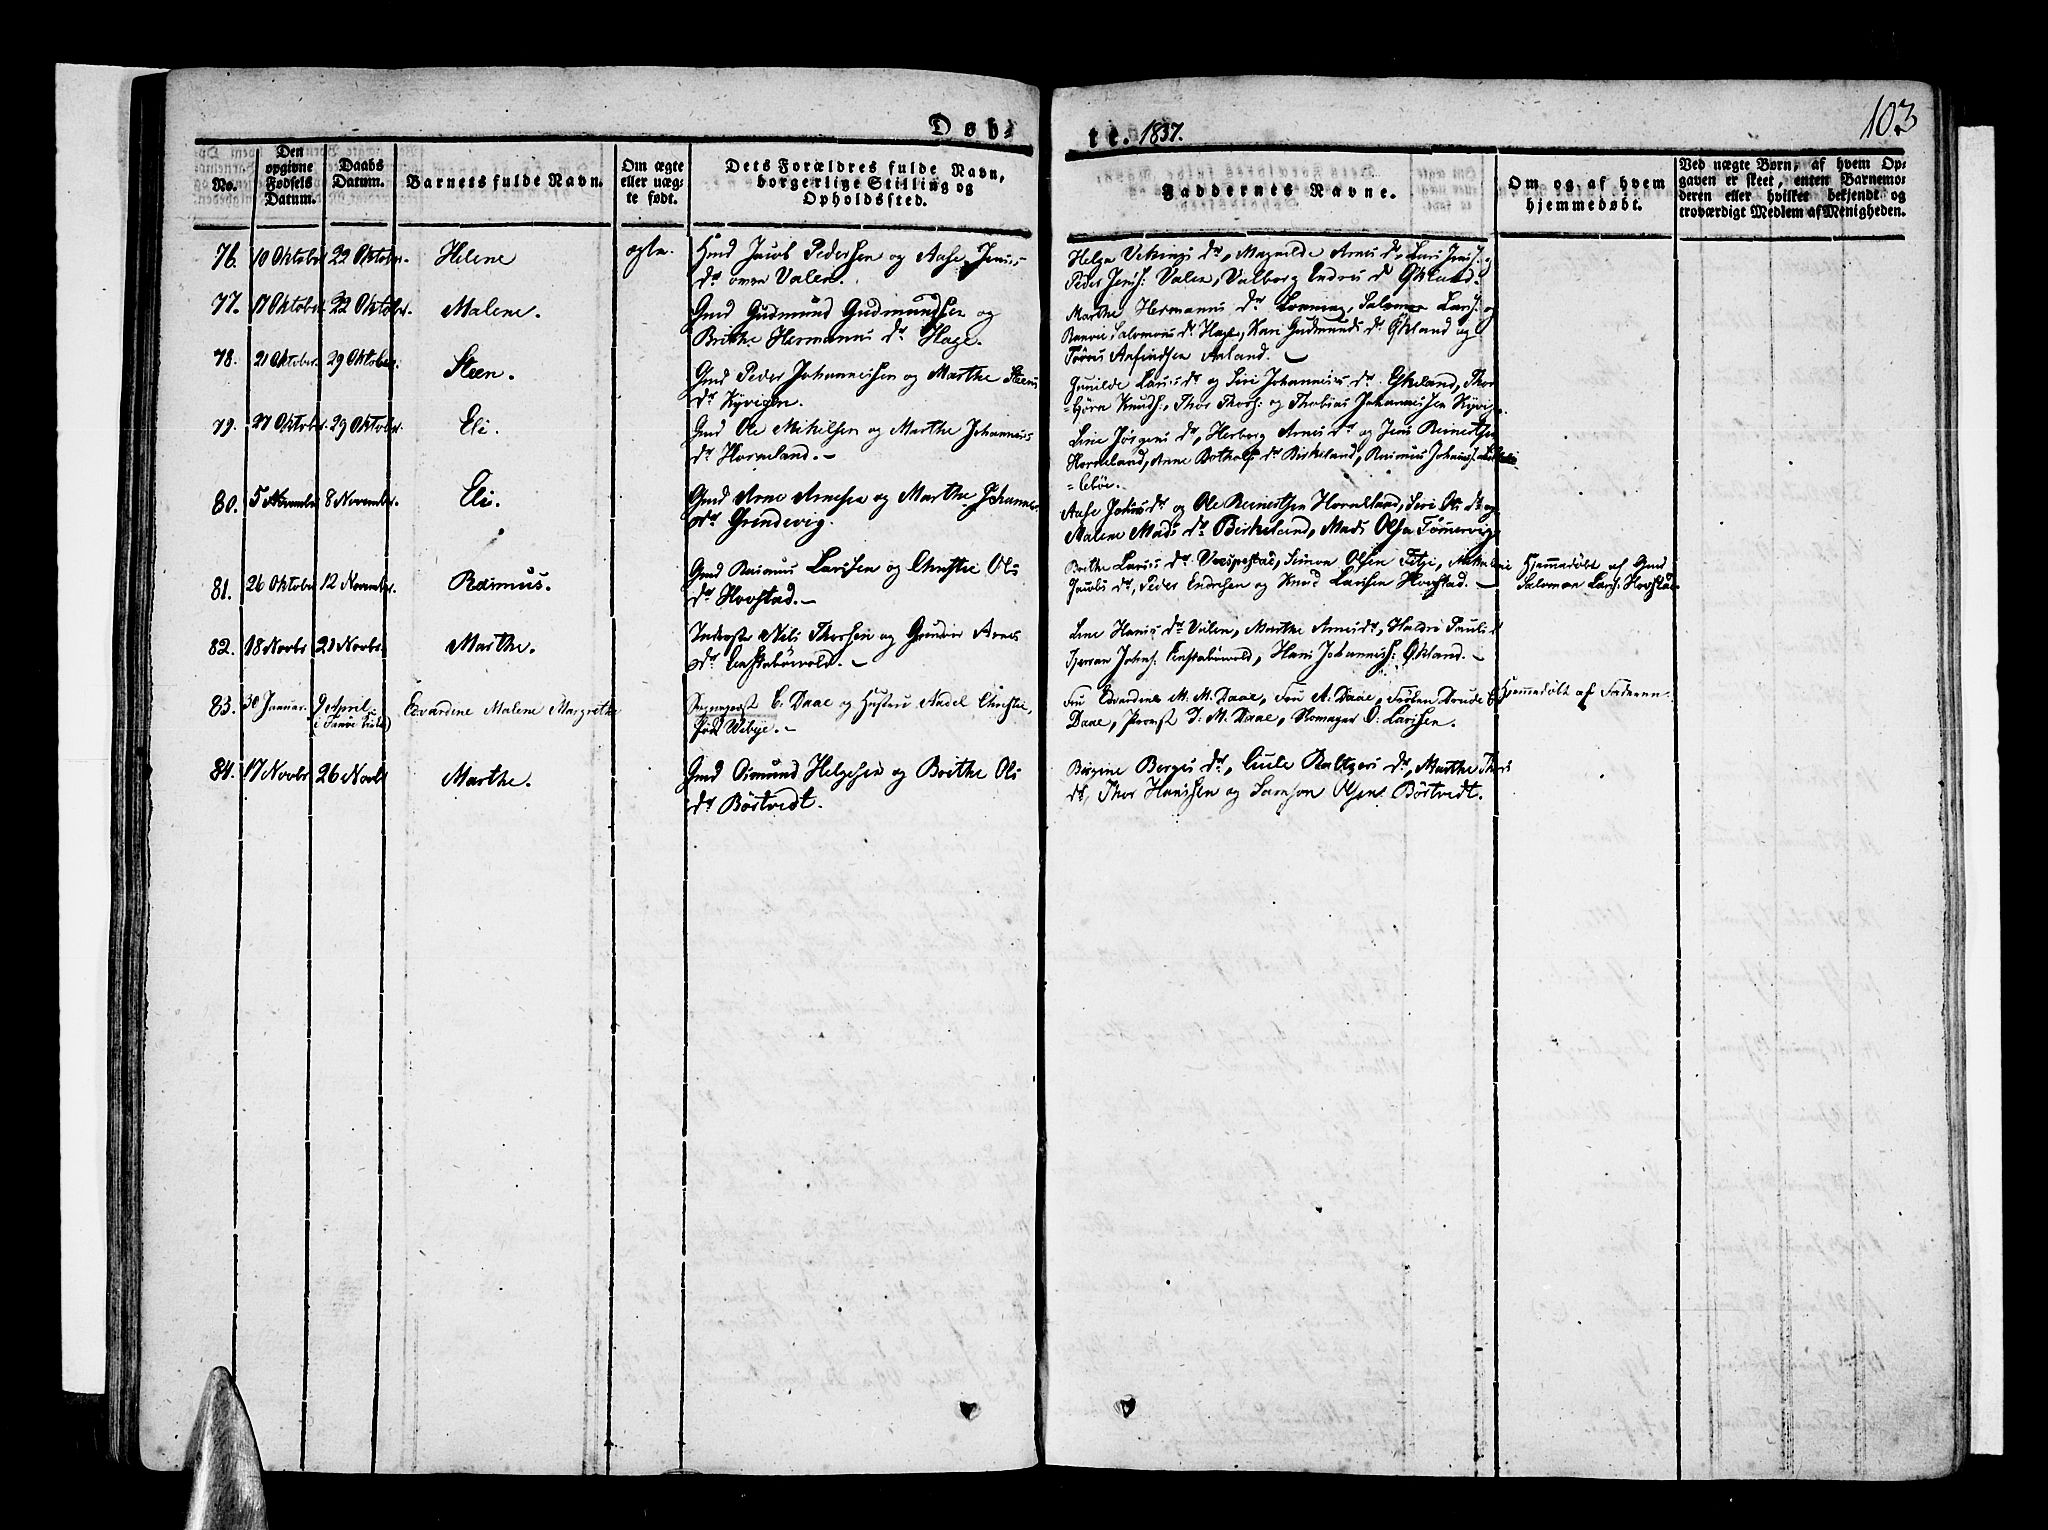 Døb-
te. 1837.
103
No.
Den opgivne Fødsels Datum.
Daabs Datum.
Barnets fulde Navn.
Om ægte eller uægte født.
Dets Forældres fulde Navn, borgerlige Stilling og Opholdssted.
Faddernes Navne.
Om og af hvem hjemmedøbt.
Ved uægte Børn, af hvem Opgaven er skeet, enten Barnemoderen eller hvilket bekjendt og troværdigt Medlem af Menigheden.
76. 10 Oktober 22 Oktober. Helene ægte. Hmd Jacob Pedersen og Aase Jens
dr Valen.
Helga Vikings dr, Magnilde Arnes dr, Lars Jens. og
Peder Jens: Valen, Valborg Endres dr Økland.
77. 17 Oktober 22 Oktober. Malene. Gmd Gudmund Gudmundsen og
Brithe Hermanns dr Hage.
Marthe Hermanns dr, Salomon Lars: og
Rannei Salomons dr Hage, Kari Gudmunds dr Økland og
Aaland.
78. 21 Oktober. 29 Oktober. Steen. Gmd Peder Johannessen og Marthe Steens
dr Kyvigen.
Gunilde Larsdr og Siri Johannes dr Økeland, Thor-
=biørn Knuds:, Thor Thors: og Thobias Johannessen Kyvigen.
79. 27 Oktober. 29 Oktober. Eli. Gmd Ole Mikelsen og Marthe Johannes
dr Horneland.
Line Jørgens dr, Herborg Arnes dr og Jens Reinertsen
Horneland, Anne Botholfs dr Birkeland, Rasmus Johans:
80. 5 November 8 November. Eli. Gmd Arne Arnesen og Marthe Johannes
dr Grindevig.
Aase dr og Ole Reinertsen Horneland, Siri Ols dr og
Malene Mads dr Birkeland, Mads Olsen Tømmervig
81. 26 Oktober 12 November. Rasmus. Gmd Rasmus Larssen og Christie Ols
dr Hovstad.
Brithe Lars dr Vespestad, Simon Olsen Fitje,
Jacobs dr, Peder Endresen og Knud Larssen Hovstad.
Hjemmedøbt af Gmd
Salomon Lars: Hovstad
82. 18 Novbr 21 Novbr. Marthe. Inderste Nils Thorsen og Arnes
dr
Line Hans dr Valen, Marthe Arnes dr,
Johns: Hans Johanness: Økland.
83. 30 Januar. 9 April Edvardine Malene Margrethe
Sognepræst C. Daae og Hustru Christie,
Wibye.
Fru Edvardine M. M. Daae, Fru A. Daae, Frøken
Daae, Provst J. M. Daae, O: Larssen.
Hjemmedøbt af Faderen.
84. 17 Novbr 26 Novbr Marthe. Gmd Osmund Helgesen og Brithe Ols
dr Børtvedt.
Birgine Børges dr, dr, Marthe Thors
dr, Thor Hanssen og Samson Olsens Børtvedt.